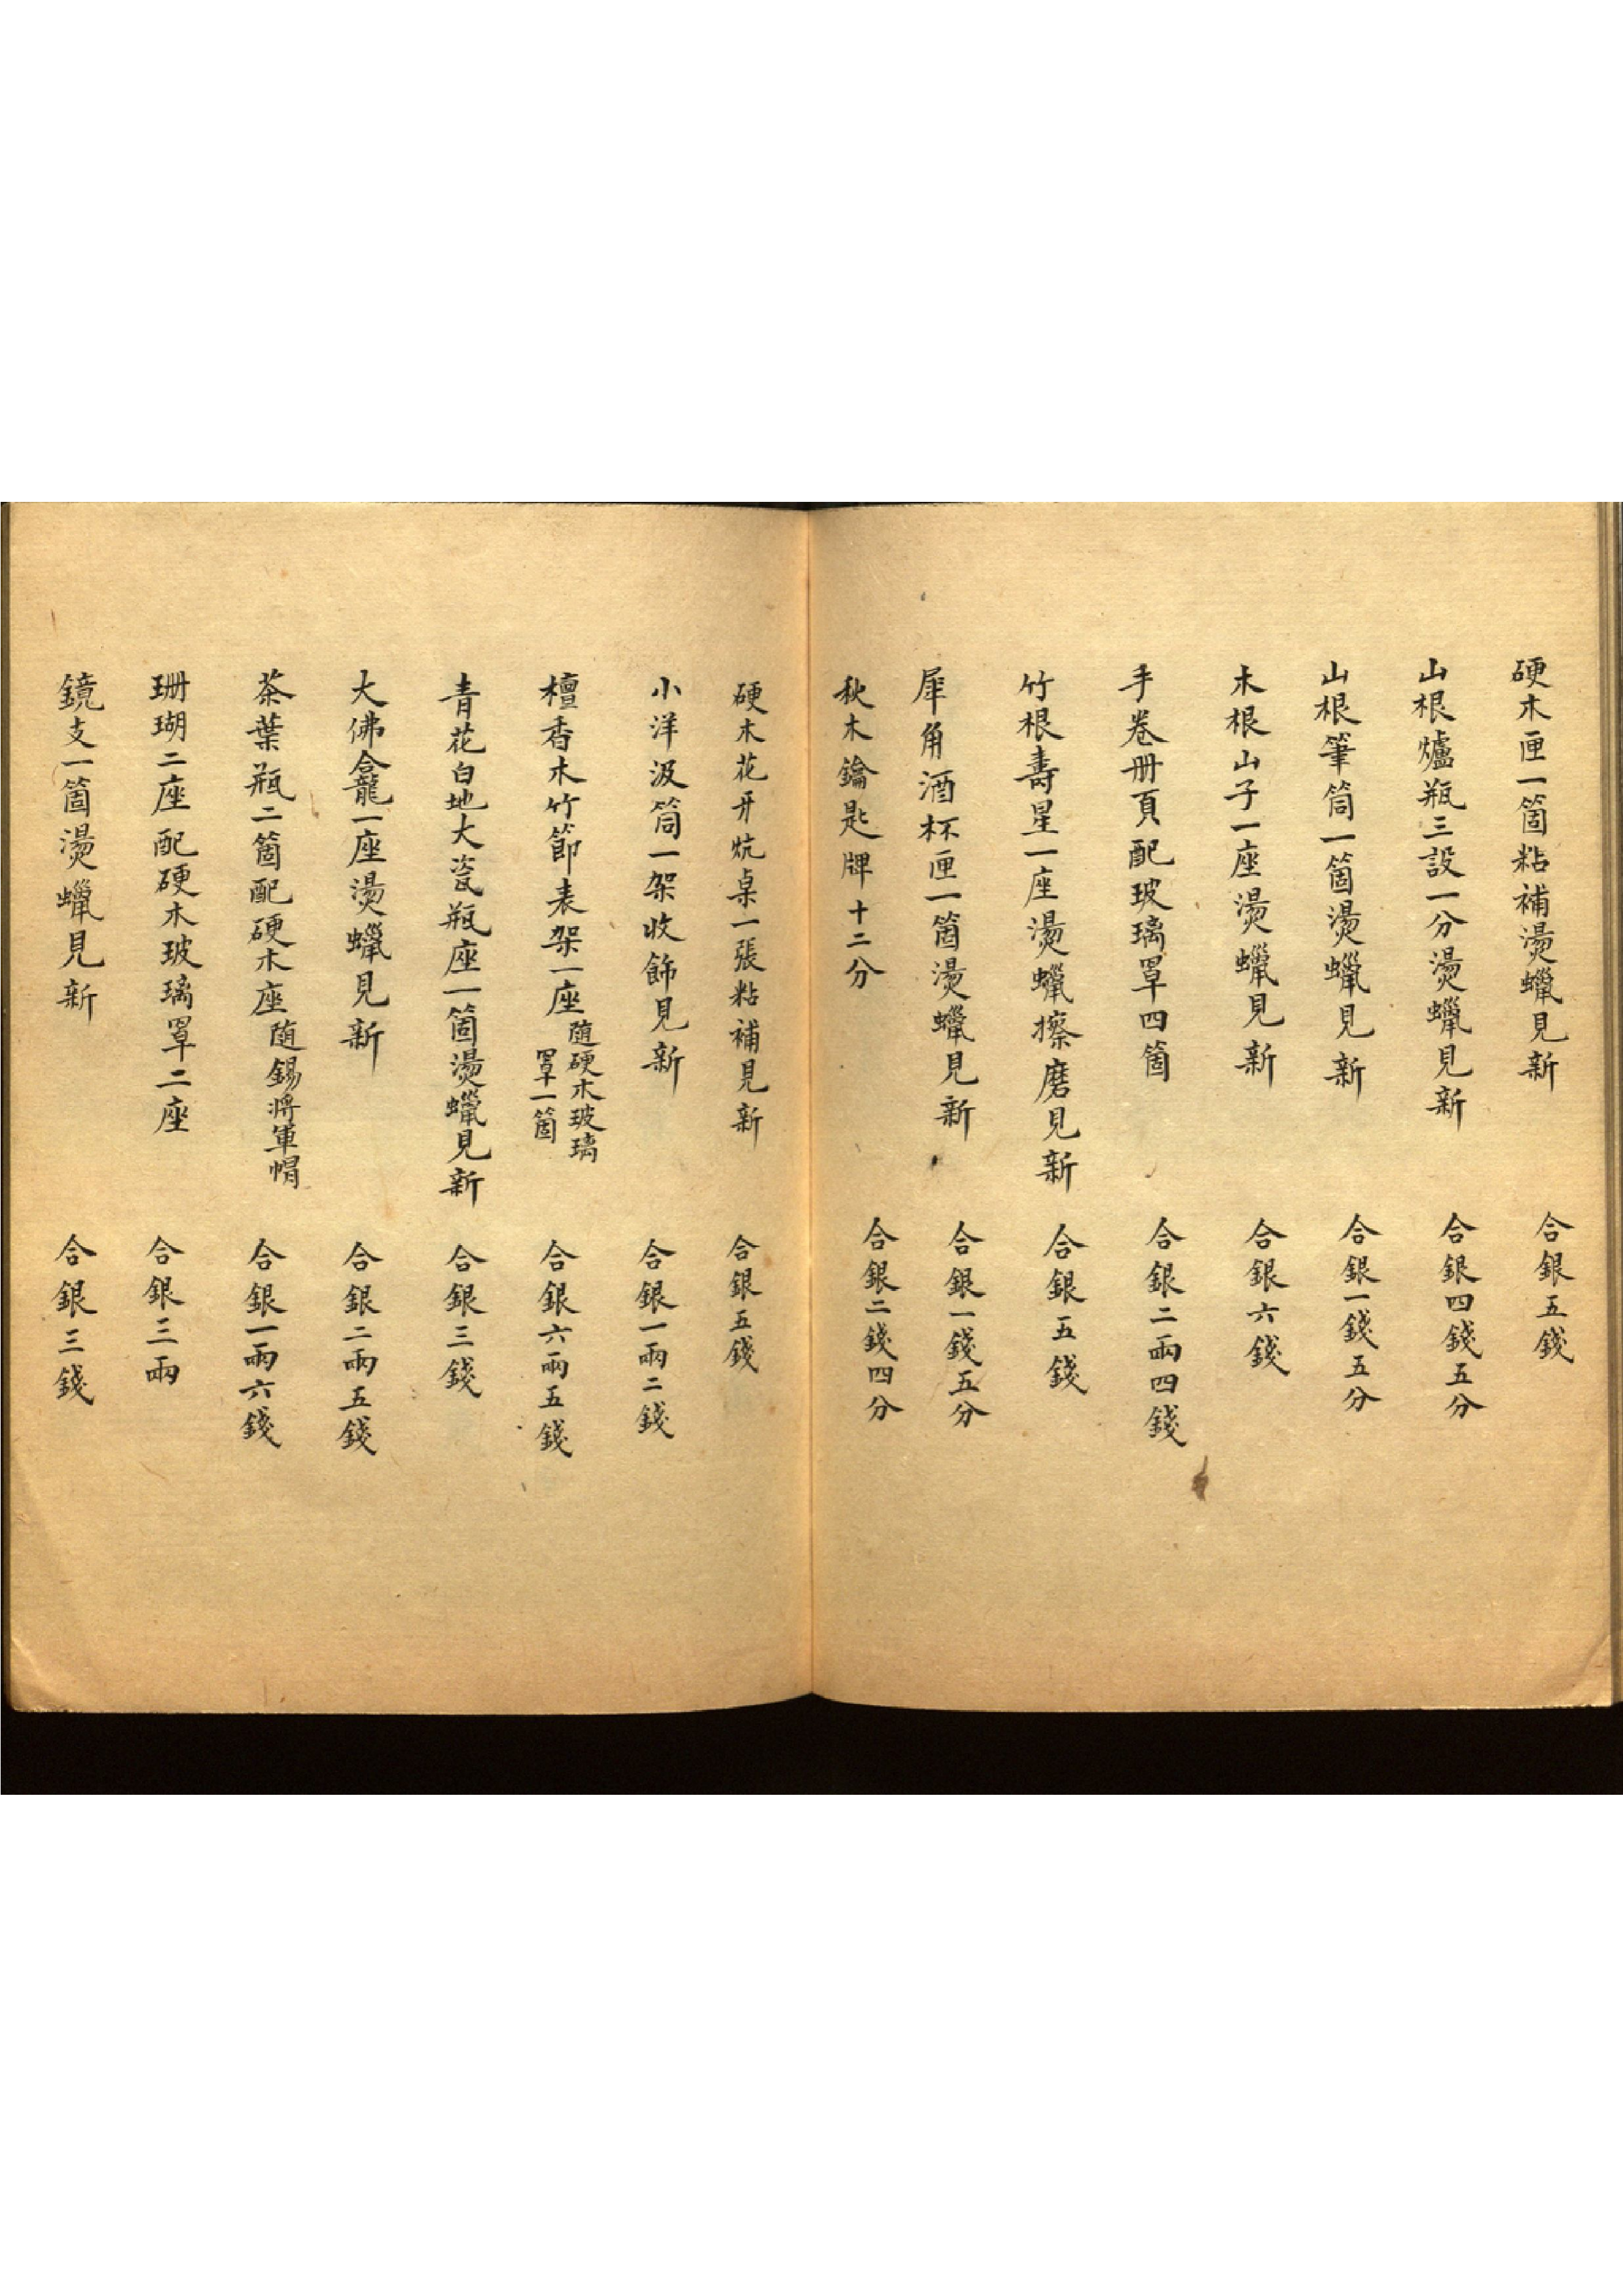 硬木匣一箇粘補燙蠟見新　合銀五錢
山根爐瓶三設一分燙蠟見新　合銀四錢五分
山根筆筒一箇燙蠟見新　合銀一錢五分
木根山子一座燙蠟見新　合銀六錢
手卷册頁配玻璃罩四箇　合銀二兩四錢
竹根壽星一座燙蠟擦磨見新　合銀五錢
犀角酒杯匣一箇燙蠟見新　合銀一錢五分
秋木鑰匙牌十二分　合銀二錢四分
硬木花牙炕桌一張粘補見新　合銀五錢
小洋汲筒一架收飾見新　合銀一兩二錢
檀香木竹節表架一座隨硬木玻璃罩一箇　合銀六兩五錢
青花白地大瓷瓶座一箇燙蠟見新　合銀三錢
大佛龕一座燙蠟見新　合銀二兩五錢
茶葉瓶二箇配硬木座隨錫將軍帽　合銀一兩六錢
珊瑚二座配硬木玻璃罩二座　合銀三兩
鏡支一箇燙蠟見新　合銀三錢